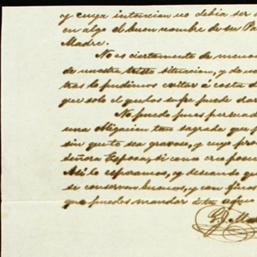 y cuya intencion no debia ser
en algo el buen nombre de su Pa
Madre.
No es ciertamente de menos
de nuestra triste situacion, y de no
tras lo pudimos evitar á costa d
que solo el que los sufre puede dar
No puedo pues persuad
una obligacion tan sagrada que p
sin que te sea gravosa, y cuyo pro
señora Esposa, si como creo posee
Asi lo esperamos, y deseando que
se conserven buenos, y con finos
que puedes mandar á tu
G. J.